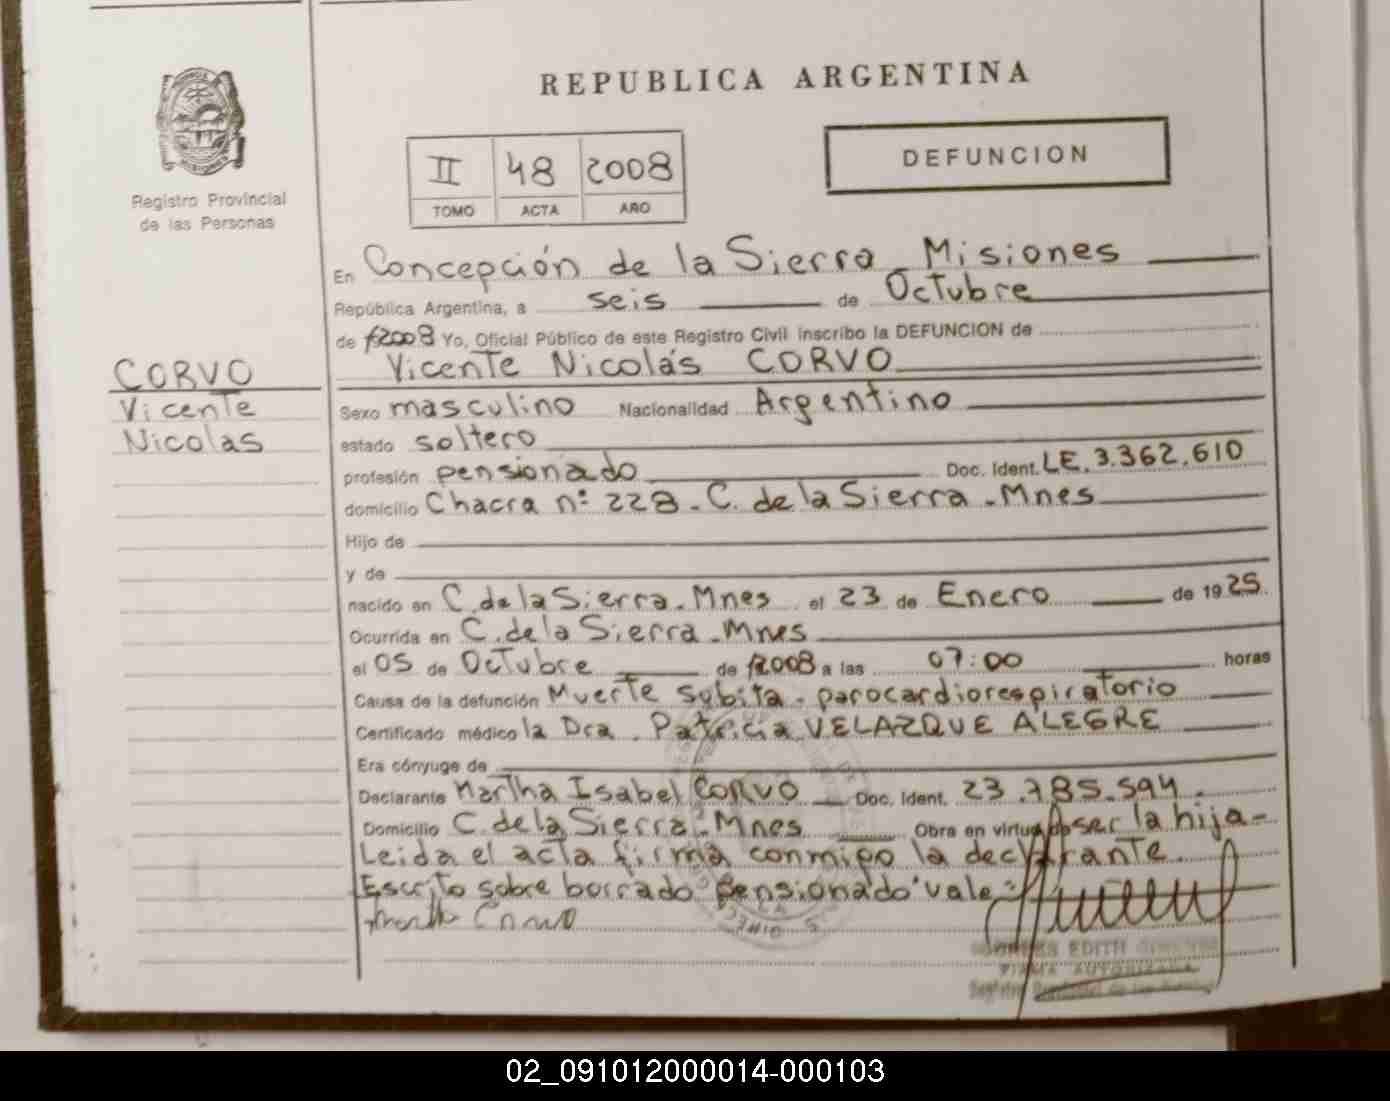 REPUBLICA ARGENTINA
II 48 2008
TOMO ACTA AÑO
DEFUNCION
Registro Provincial
de las Personas
En Concepción de la Sierra Misiones
República Argentina, a seis de Octubre
de 2008 Yo, Oficial Público de este Registro Civil inscribo la DEFUNCION de
Vicente Nicolás CORVO
CORVO
Vicente
Nicolas
Sexo masculino Nacionalidad Argentino
estado soltero
profesión pensionado Doc. Ident. LE. 3.362.610
domicilio Chacra nº 228 - C. de la Sierra - Mnes
Hijo de
y de
nacido en C. de la Sierra - Mnes el 23 de Enero de 1925
Ocurrida en C. de la Sierra - Mnes
el 05 de Octubre de 2008 a las 07:00 horas
Causa de la defunción Muerte subita - parocardiorespiratorio
Certificado médico la Dra. Patricia VELAZQUE ALEGRE
Era cónyuge de
Declarante Martha Isabel CORVO Doc. Ident. 23.785.594
Domicilio C. de la Sierra - Mnes Obra en virtud de ser la hija-
Leida el acta firma conmigo la declarante
Escrito sobre borrado "pensionado" vale-
EDITH
FIRMA AUTORIZADA
02_091012000014-000103